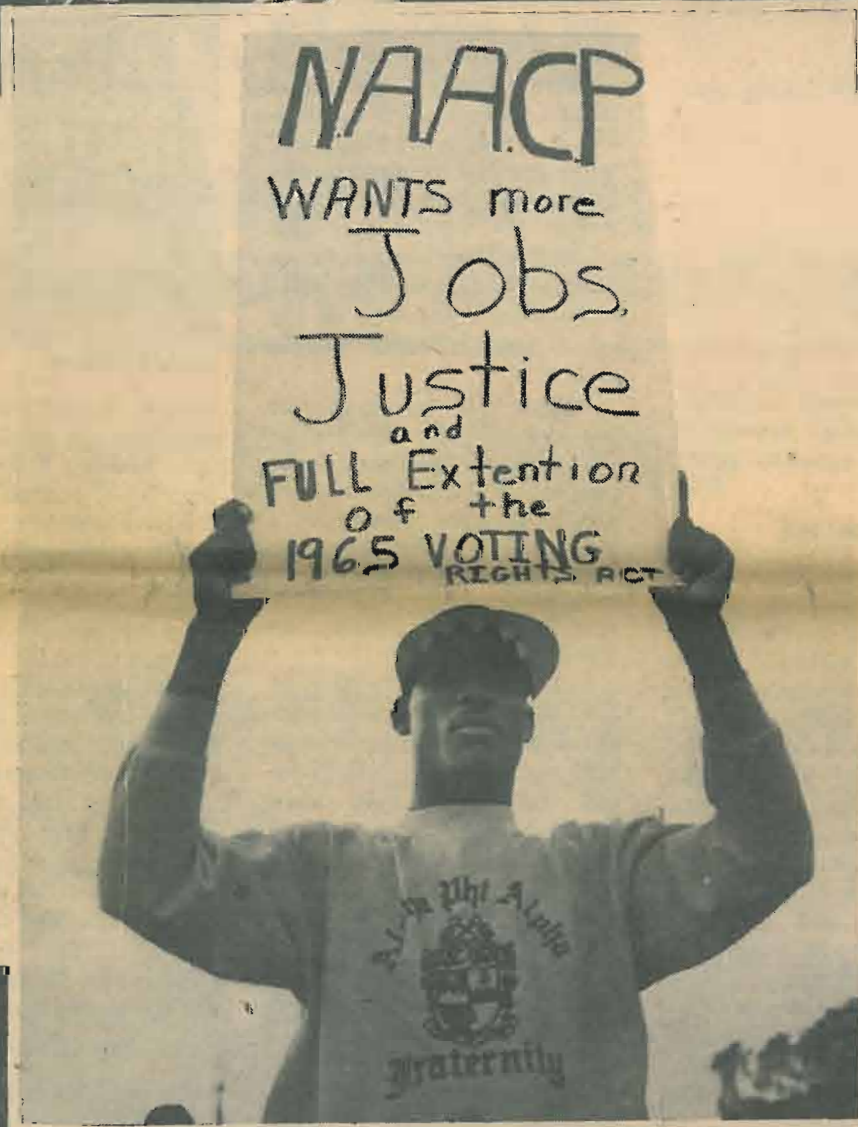 N.A.A.C.P
WANTS more
Jobs,
Justice
and
FULL Extention
of the
1965 VOTING
RIGHTS ACT
Alpha Phi Alpha
Fraternity